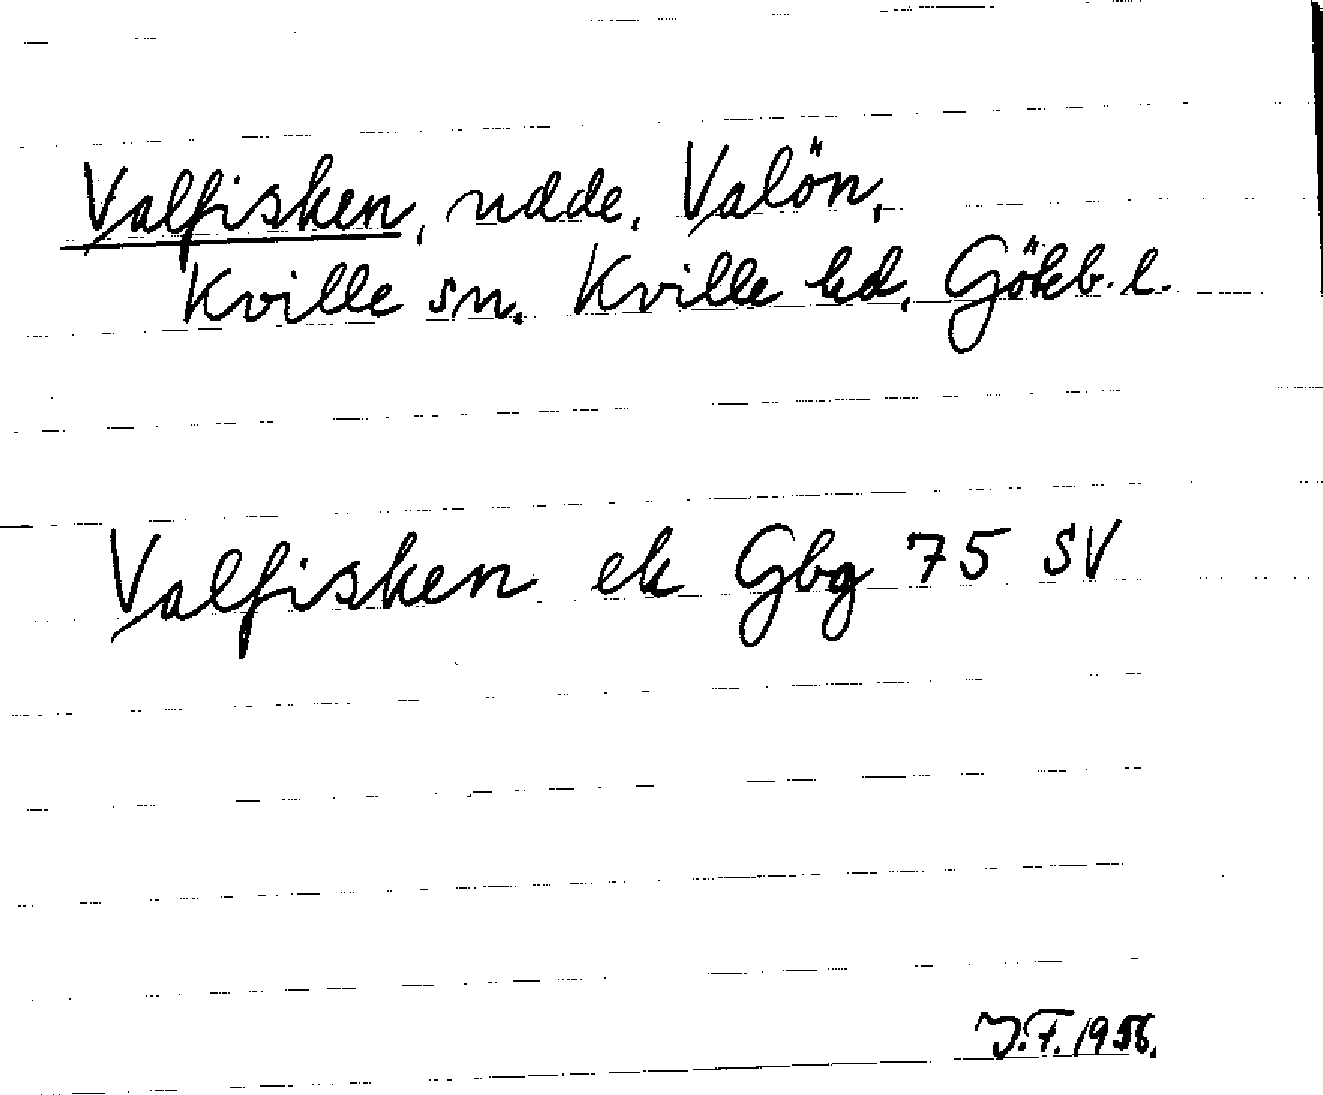 Valfisken, udde, Valön,
Kville sn. Kville hd. Göteb. l.
Valfisken ek Gbg 75 SV
J.F. 1956.